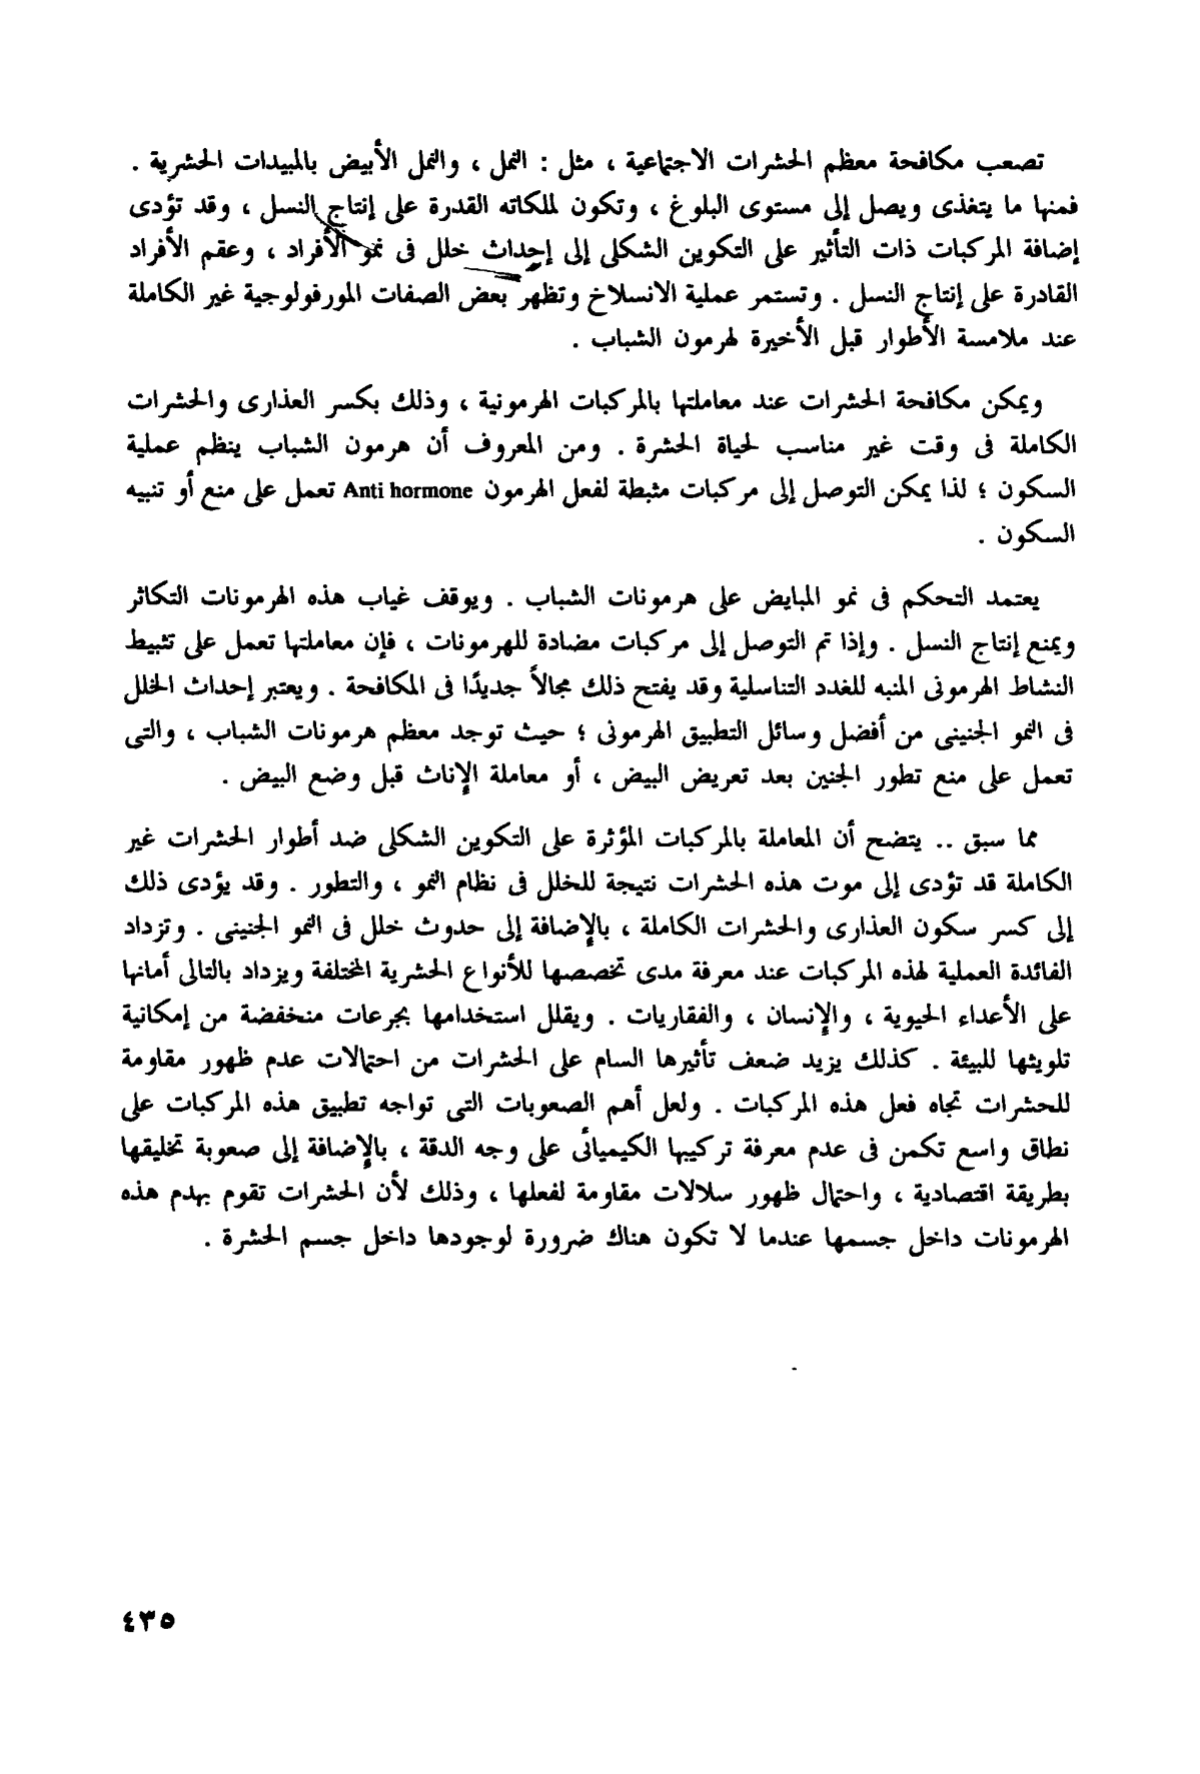 تصعب مكافحة معظم الحشرات الاجتماعية ، مثل : النمل ، والنمل الأبيض بالمبيدات الحشرية .
فمنها ما يتغذى ويصل إلى مستوى البلوغ ، وتكون لملكاته القدرة على إنتاج النسل ، وقد تؤدى
إضافة المركبات ذات التأثير على التكوين الشكلى إلى إحداث خلل فى نمو الأفراد ، وعقم الأفراد
القادرة على إنتاج النسل . وتستمر عملية الانسلاخ وتظهر بعض الصفات المورفولوجية غير الكاملة
عند ملامسة الأطوار قبل الأخيرة لهرمون الشباب .
ويمكن مكافحة الحشرات عند معاملتها بالمركبات الهرمونية ، وذلك بكسر العذارى والحشرات
الكاملة فى وقت غير مناسب لحياة الحشرة . ومن المعروف أن هرمون الشباب ينظم عملية
السكون ؛ لذا يمكن التوصل إلى مركبات مثبطة لفعل الهرمون Anti hormone تعمل على منع أو تنبيه
السكون .
يعتمد التحكم فى نمو المبايض على هرمونات الشباب . ويوقف غياب هذه الهرمونات التكاثر
ويمنع إنتاج النسل . وإذا تم التوصل إلى مركبات مضادة للهرمونات ، فإن معاملتها تعمل على تثبيط
النشاط الهرمونى المنبه للغدد التناسلية وقد يفتح ذلك مجالاً جديدًا فى المكافحة . ويعتبر إحداث الخلل
فى النمو الجنينى من أفضل وسائل التطبيق الهرمونى ؛ حيث توجد معظم هرمونات الشباب ، والتى
تعمل على منع تطور الجنين بعد تعريض البيض ، أو معاملة الإناث قبل وضع البيض .
مما سبق .. يتضح أن المعاملة بالمركبات المؤثرة على التكوين الشكلى ضد أطوار الحشرات غير
الكاملة قد تؤدى إلى موت هذه الحشرات نتيجة للخلل فى نظام النمو ، والتطور . وقد يؤدى ذلك
إلى كسر سكون العذارى والحشرات الكاملة ، بالإضافة إلى حدوث خلل فى النمو الجنينى . وتزداد
الفائدة العملية لهذه المركبات عند معرفة مدى تخصصها للأنواع الحشرية المختلفة ويزداد بالتالى أمانها
على الأعداء الحيوية ، والإنسان ، والفقاريات . ويقلل استخدامها بجرعات منخفضة من إمكانية
تلويثها للبيئة . كذلك يزيد ضعف تأثيرها السام على الحشرات من احتمالات عدم ظهور مقاومة
للحشرات تجاه فعل هذه المركبات . ولعل أهم الصعوبات التى تواجه تطبيق هذه المركبات على
نطاق واسع تكمن فى عدم معرفة تركيبها الكيميائى على وجه الدقة ، بالإضافة إلى صعوبة تخليقها
بطريقة اقتصادية ، واحتمال ظهور سلالات مقاومة لفعلها ، وذلك لأن الحشرات تقوم بهدم هذه
الهرمونات داخل جسمها عندما لا تكون هناك ضرورة لوجودها داخل جسم الحشرة .
٤٣٥